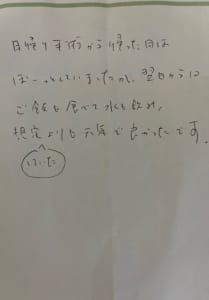 日帰り手術から帰った日は
ぼーっとしていましたが、翌日からは
ご飯も食べて水も飲み、
想定よりも元気で良かったです
していた